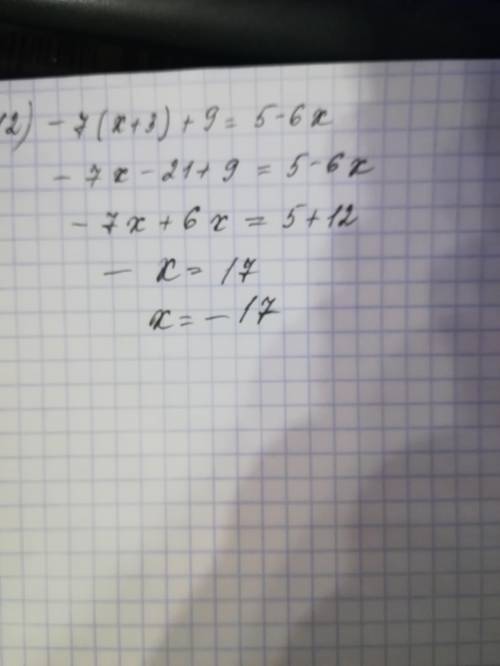 12) - 7(x+3) + 9 = 5 - 6x
- 7x - 21 + 9 = 5 - 6x
- 7x + 6x = 5 + 12
- x = 17
x = - 17